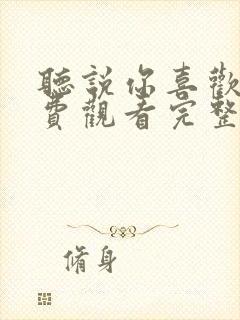 聽說你喜歡
費觀看完整
脩身